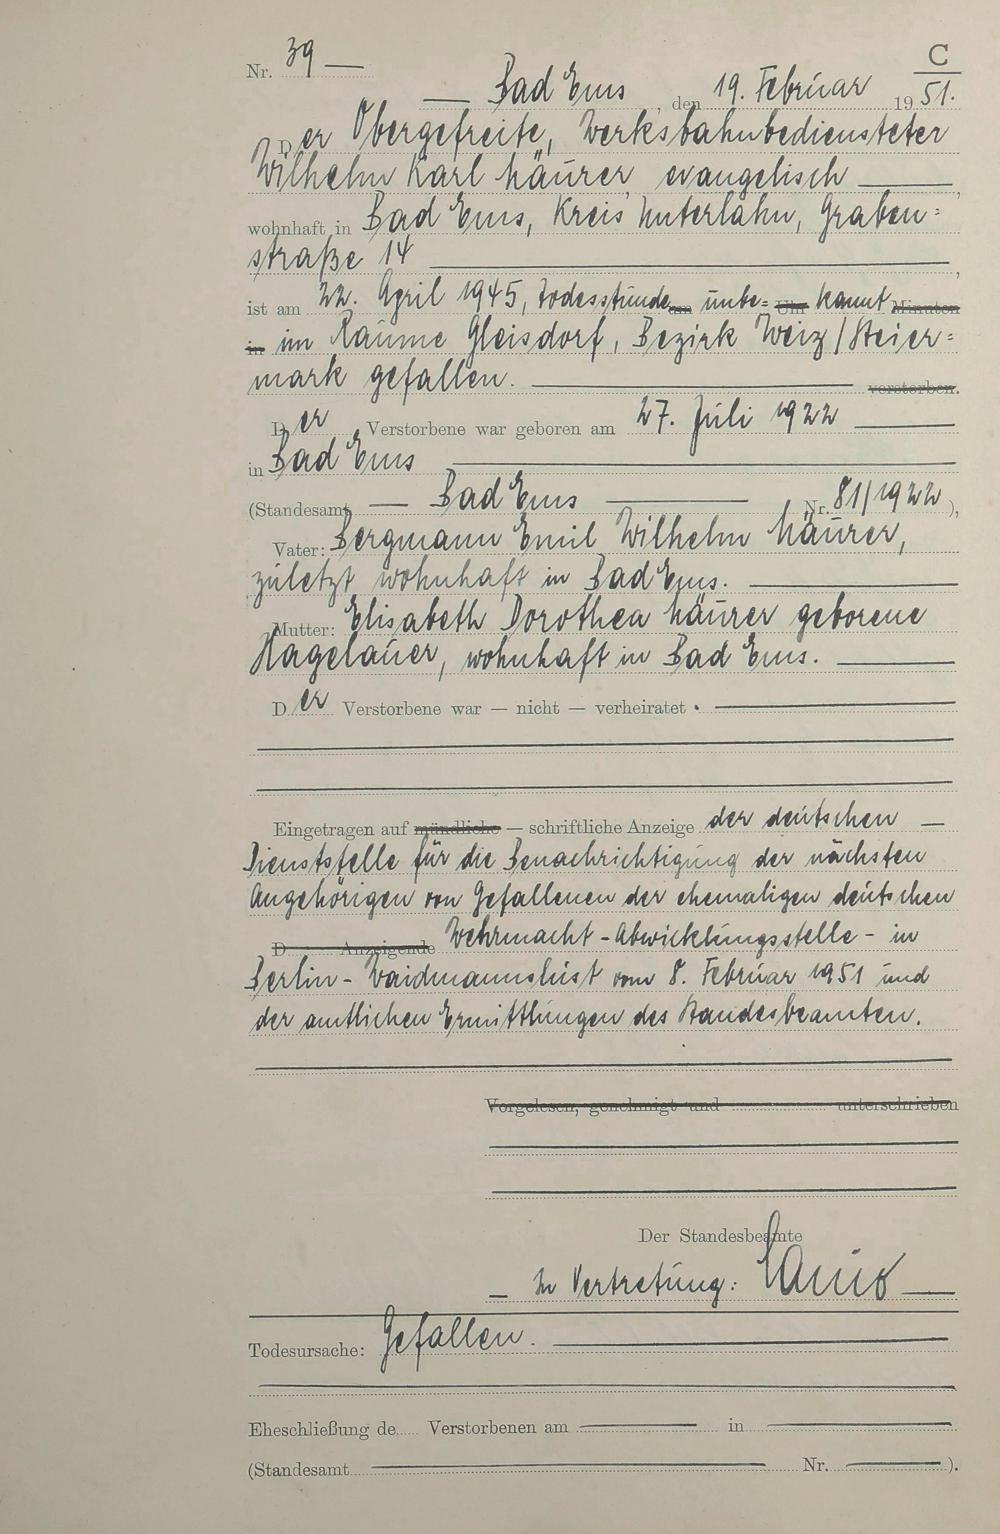 Nr. 39 —
C
— Bad Ems, den 19. Februar 1951.
Der Obergefreite, Werksbahnbediensteter
Wilhelm Karl Mäurer, evangelisch —,
wohnhaft in Bad Ems, Kreis Unterlahn, Graben=
straße 14 —,
ist am 22. April 1945, Todesstunde um unbe= Uhr kannt Minuten
in im Raume Gleisdorf, Bezirk Weiz/Steier=
mark gefallen. — verstorben.
Der Verstorbene war geboren am 27. Juli 1922 —
in Bad Ems —
(Standesamt — Bad Ems — Nr. 81/1922),
Vater: Bergmann Emil Wilhelm Mäurer,
zuletzt wohnhaft in Bad Ems. —
Mutter: Elisabeth Dorothea Mäurer geborene
Hagelauer, wohnhaft in Bad Ems. —
Der Verstorbene war — nicht — verheiratet. —
Eingetragen auf mündliche — schriftliche Anzeige der deutschen —
Dienststelle für die Benachrichtigung der nächsten
Angehörigen von Gefallenen der ehemaligen deutschen
D Anzeigende Wehrmacht - Abwicklungsstelle - in
Berlin - Waidmannslust vom 8. Februar 1951 und
der amtlichen Ermittlungen des Standesbeamten.
Vorgelesen, genehmigt und unterschrieben
Der Standesbeamte
— In Vertretung: —
Todesursache: Gefallen. —
Eheschließung de Verstorbenen am — in —
(Standesamt — Nr. — ).